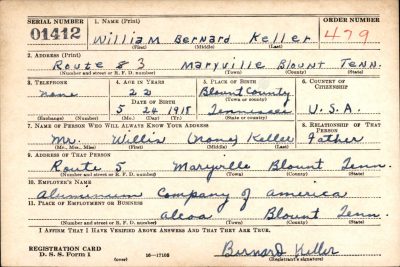 SERIAL NUMBER 1. NAME (Print) ORDER NUMBER
01412 William Bernard Keller 479
(First) (Middle) (Last)
2. ADDRESS (Print)
Route # 3 Maryville Blount Tenn.
(Number and street or R. F. D. number) (Town) (County) (State)
3. TELEPHONE 4. AGE IN YEARS 5. PLACE OF BIRTH 6. COUNTRY OF CITIZENSHIP
none 22 Blount County
DATE OF BIRTH (Town or county)
5 26 1918 Tennessee U.S.A.
(Exchange) (Number) (Mo.) (Day) (Yr.) (State or country)
7. NAME OF PERSON WHO WILL ALWAYS KNOW YOUR ADDRESS 8. RELATIONSHIP OF THAT PERSON
Mr. Willis (none) Keller Father
(Mr., Mrs., Miss) (First) (Middle) (Last)
9. ADDRESS OF THAT PERSON
Route 5 Maryville Blount Tenn.
(Number and street or R. F. D. number) (Town) (County) (State)
10. EMPLOYER'S NAME
Aluminum Company of America
11. PLACE OF EMPLOYMENT OR BUSINESS
Alcoa Blount Tenn.
(Number and street or R. F. D. number) (Town) (County) (State)
I AFFIRM THAT I HAVE VERIFIED ABOVE ANSWERS AND THAT THEY ARE TRUE.
REGISTRATION CARD Bernard Keller
D. S. S. Form 1 (over) 16—17105 (Registrant's signature)